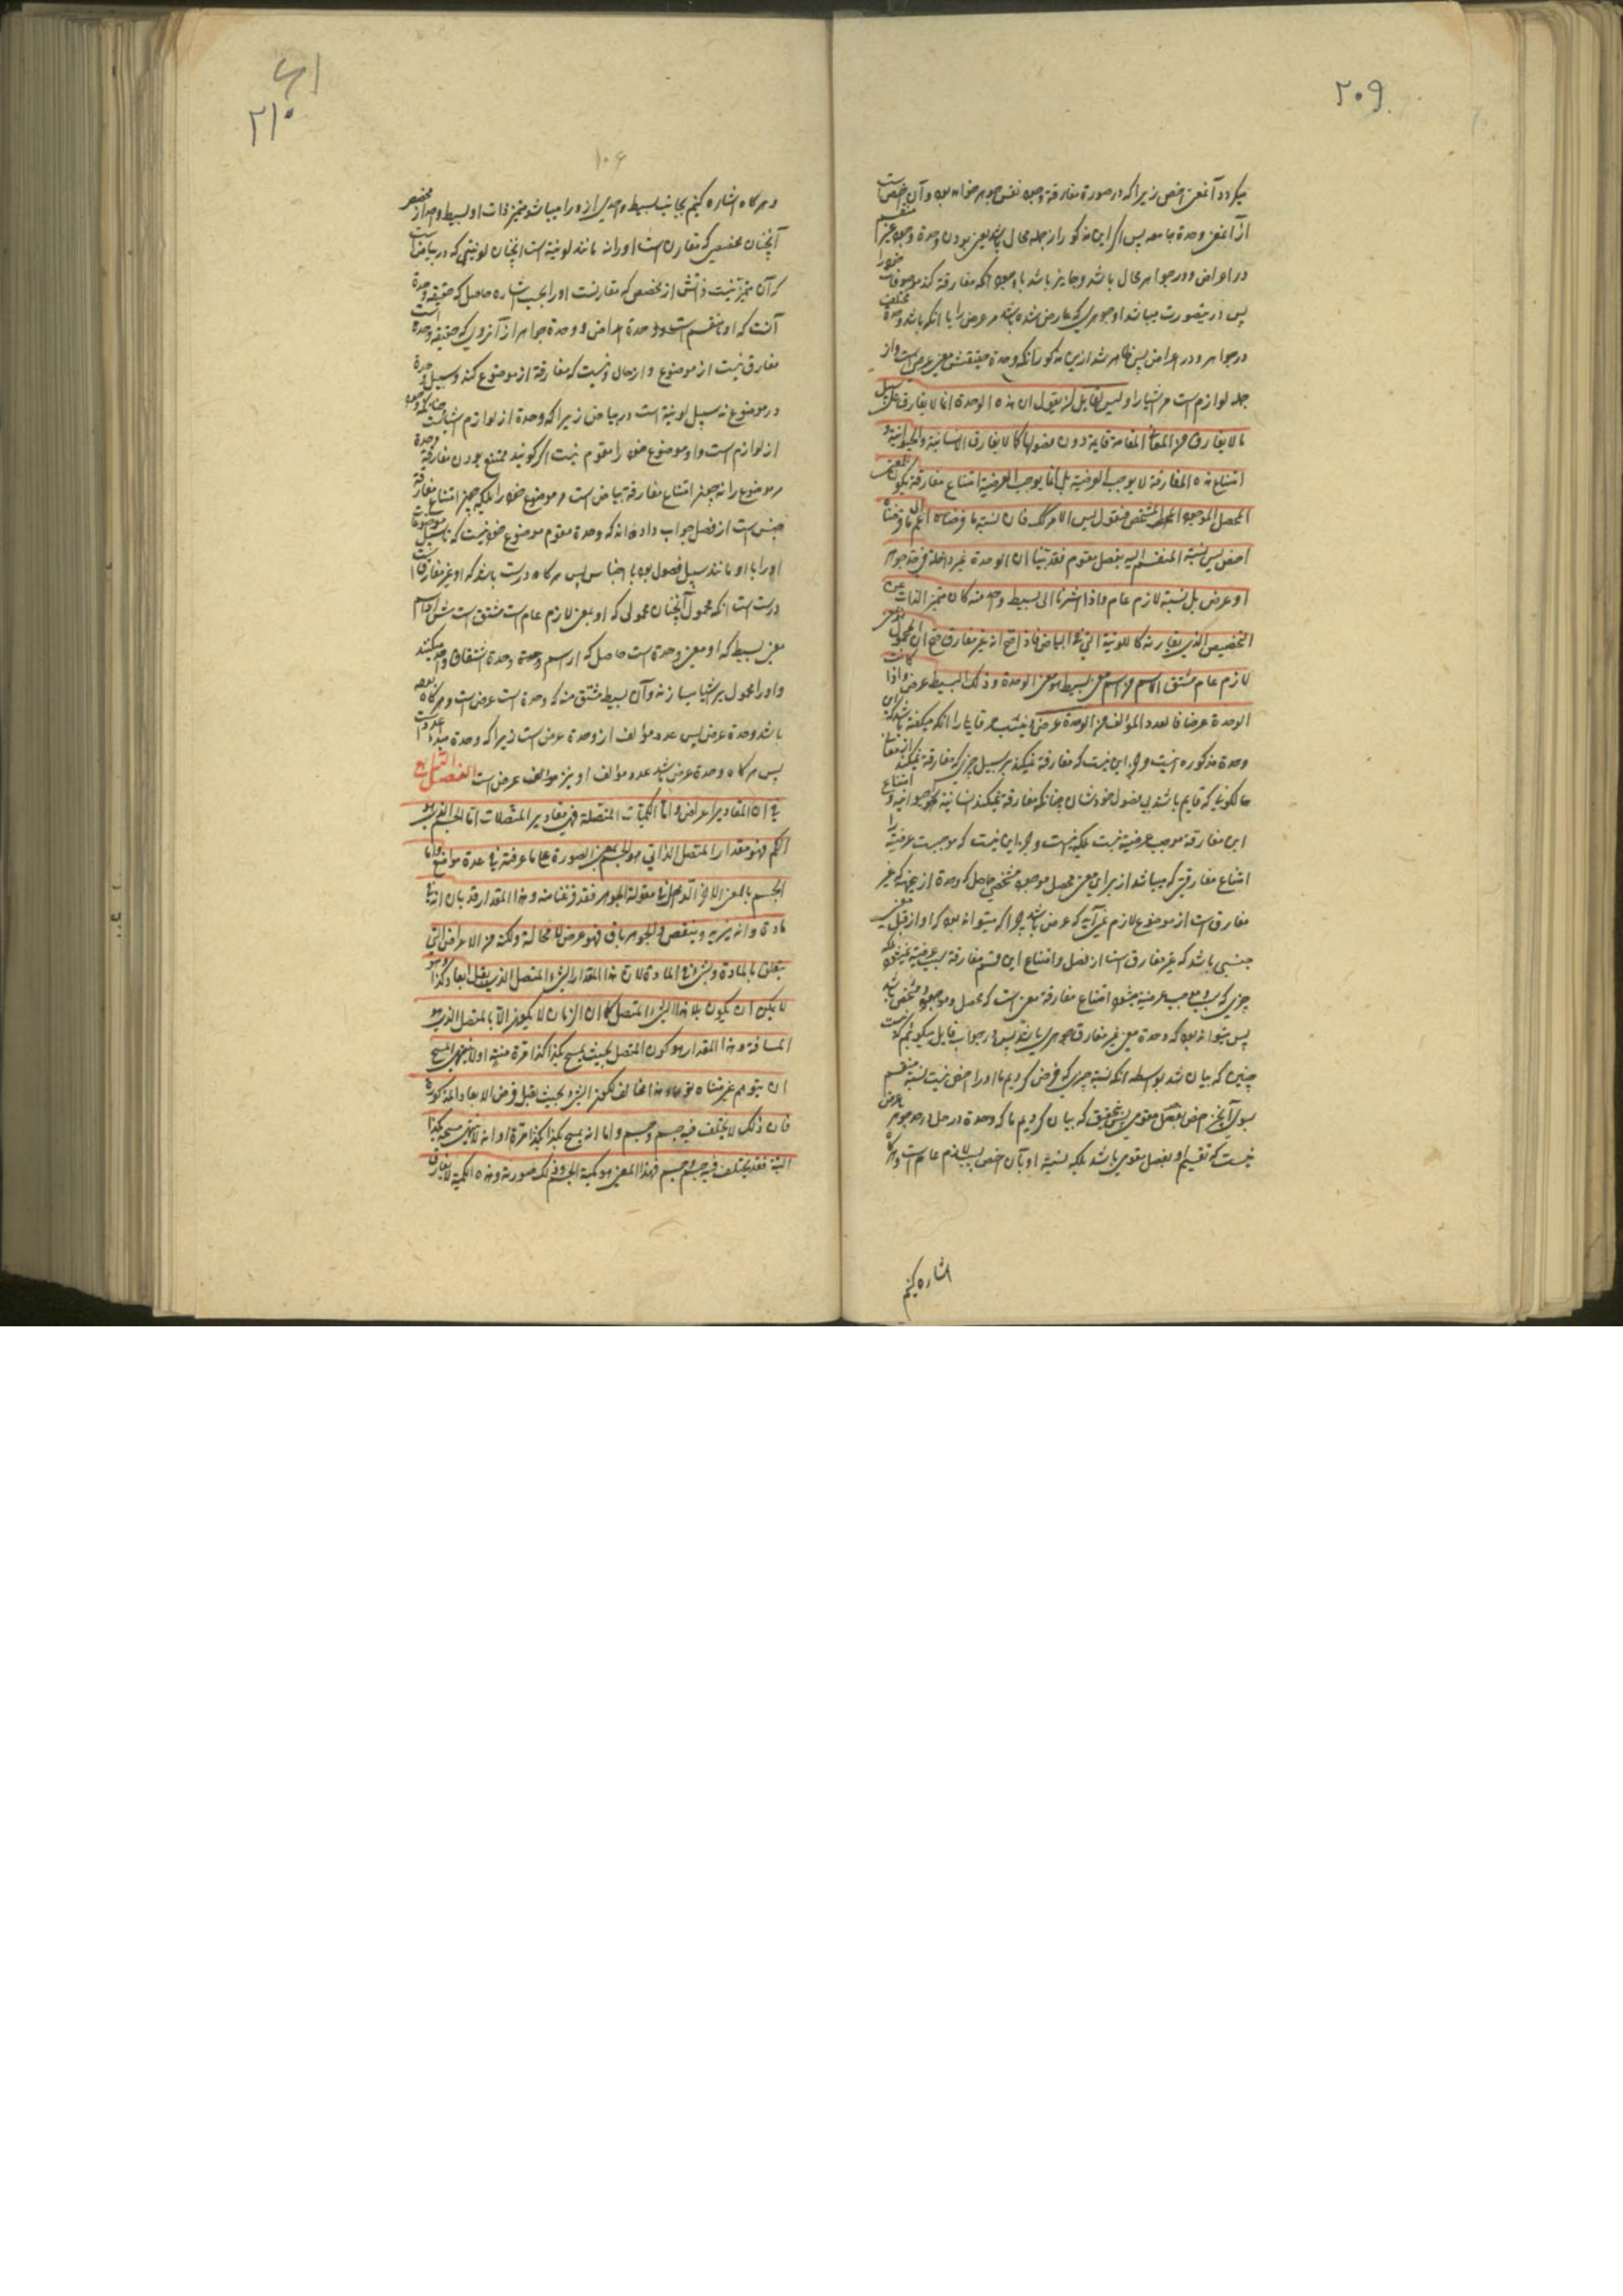 ۲۰۹
میکردد آنمعنی اخص زیرا که در صورة مفارقة وجود نفس جوهر خواهد بود و آن اخص است
از آنمعنی وحدة جامعه پس اکر این مذکور از جمله محال باشد یعنی بودن وحدة وجود غیر منقسم
در اعراض و در جواهر محال باشد و جایز باشد با وجود انکه مفارقة کند موصوفات خود را
پس در ینصورت میباشد او جوهری که عارض شده باشد مر عرض را یا انکه باشد وحدة مختلف
در جواهر و در اعراض پس ظاهر شد ازین مذکور تا انکه وحدة حقیقتش معنی عرض است و از
جمله لوازم است مر اشیا را و لیس لقایل ان یقول ان هذه الوحدة انما لا یفارق علی سبیل
ما لا یفارق من المعانی العامة قایمة دون فصولها کما لا یفارق الانسانیة والحیوانیة و
امتناع هذه المفارقة لا یوجب العرضیة بل انما یوجب العرضیة امتناع مفارقة یکون للمعنی
المحصل الموجود المشخص فنقول لیس الامر کذلک فان نسبة ما فرضناه اعم الی ما فرضناه
اخص لیس نسبة المنقسم الیه بفصل مقوم فقد بینا ان الوحدة غیر داخلة فی حد جوهر
او عرض بل نسبة لازم عام و اذا اشرنا الی بسیط واحد منه کان متمیز الذات عن
التخصیص الذی یقارنه کاللونیة التی فی البیاض فاذا صح انه غیر مفارق صح ان المحمول الذی هو
لازم عام مشتق الاسم من اسم معنی بسیط هو معنی الوحدة و ذلک البسیط عرض و اذا کانت
الوحدة عرضا فالعدد المؤلف من الوحدة عرض
وحدة مذکوره نیست و جز این نیست که مفارقة نمیکند بر سبیل چیزی که مفارقة نمیکند از معانی
حالکونی که قایم باشند بی فصول خودشان چنانکه مفارقة نمیکند انسانیة حیوانیة و امتناع
این مفارقة موجب عرضیة نیست بلکه نیست و جز این نیست که موجبست عرضیة را
امتناع مفارقتی که میباشد از برای معنی محصل موجود مشخصی حاصل که وحدة از جهة که غیر
مفارق است از موضوع لازم نمی آید که عرض باشد چرا که میتواند بود که او از قبیل معنی
جنسی باشد که غیر مفارق است از فصل و امتناع این قسم مفارقة سبب عرضیة نمیشود بلکه
چیزی که سبب عرضیة میشود امتناع مفارقة معنی است که محصل و موجود و مشخص باشد
پس میتواند بود که وحدة معنی غیر مفارق جوهری باشد پس در جواب قایل میکوئیم که نیست
چنین که بیان شد بواسطه انکه نسبة چیزی که فرض کردیم ما او را اخص نیست نسبة منقسم
بسوی آنچیز اخص بفصل مقومی پس بتحقیق که بیان کردیم ما که وحدة در حد جوهر یا عرض
نیست که تقسیم او بفصل مقومی باشد بلکه نسبة او بآن اخص نسبة لازم عام است و هرکاه
اشاره کنیم
۲۱۰
۱۰۶
و هرکاه اشاره کنیم بجانب بسیط واحدی از و را میباشد متمیز ذات او بسیط واحد از مخصص
آنچنان مخصصی که مقارن است او را نه مانند لونیة است آنچنان لونیتی که در بیاض است
که آن متمیز نیست ذاتش از مخصص که مقارنست او را بحسب اشاره حاصل که حقیقة وحدة
آنست که او نا منقسم است و وحدة اعراض و وحدة جواهر از آنروی که حقیقة وحدة است
مفارق نیست از موضوع و از محال و نیست که مفارقة از موضوع کند و سبیل وحدة
در موضوع نه سبیل لونیة است در بیاض زیرا که وحدة از لوازم اشیاست
از لوازم است و او موضوع خود را مقوم نیست اکر کویند ممتنع بودن مفارقة وحدة
مر موضوع را نه چون امتناع مفارقة بیاض است مر موضوع خود را بلکه چون امتناع مفارقة
جنس است از فصل جواب داده اند که وحدة مقوم موضوع خود نیست که تا سبیل موضوعات
او را با او مانند سبیل فصول بود با اجناس پس هرکاه درست باشد که او غیر مفارق است
درست است انکه محمول آنچنان محمولی که او معنی لازم عام است مشتق است
معنی بسیط که او معنی وحدة است حاصل که از اسم وحدة اشتقاق واحد میکنند
و او را محمول بر اشیا میسازند و آن بسیط مشتق منه که وحدة است عرض است و هرکاه بوده
باشد وحدة عرض پس عدد مؤلف از وحدة عرض است زیرا که وحدة مبداء عدد است
پس هرکاه وحدة عرض باشد عدد مؤلف او نیز عرض است الفصل الرابع
فی ان المقادیر اعراض و اما الکمیات المتصلة فهی مقادیر المتصلات اما الجسم الذی هو
الکم فهو مقدار المتصل الذی هو الجسم بمعنی الصورة علی ما عرفته فی عدة مواضع و اما
الجسم بالمعنی الآخر الداخل فی مقولة الجوهر فقد فرغنا منه و هذا المقدار قد بان انه فی
مادة و انه یزید و ینقص و الجوهر باق فهو عرض لا محالة ولکنه من الاعراض التی
یتعلق بالمادة و بشیء فی المادة لان هذا المقدار لا یفارق المادة
لا یمکن ان یکون بلا هذا الشیء المتصل کما ان الزمان لا یکون الا بالمتصل الذی هو
المسافة و هذا المقدار هو کون المتصل بحیث یمسح بکذا کذا مرة او لا ینتهی المسح
ان یتوهم غیر متناه توهما و هذا مخالف لکون الشیء بحیث یقبل فرض الابعاد المذکورة
فان ذلک لا یختلف فیه جسم و جسم و اما انه یمسح بکذا کذا مرة او انه لا ینتهی مسحه بکذا
البتة فقد یختلف فیه جسم و جسم فهذا المعنی هو کمیة الجسم و ذلک صورته و هذه الکمیة لا یفارق